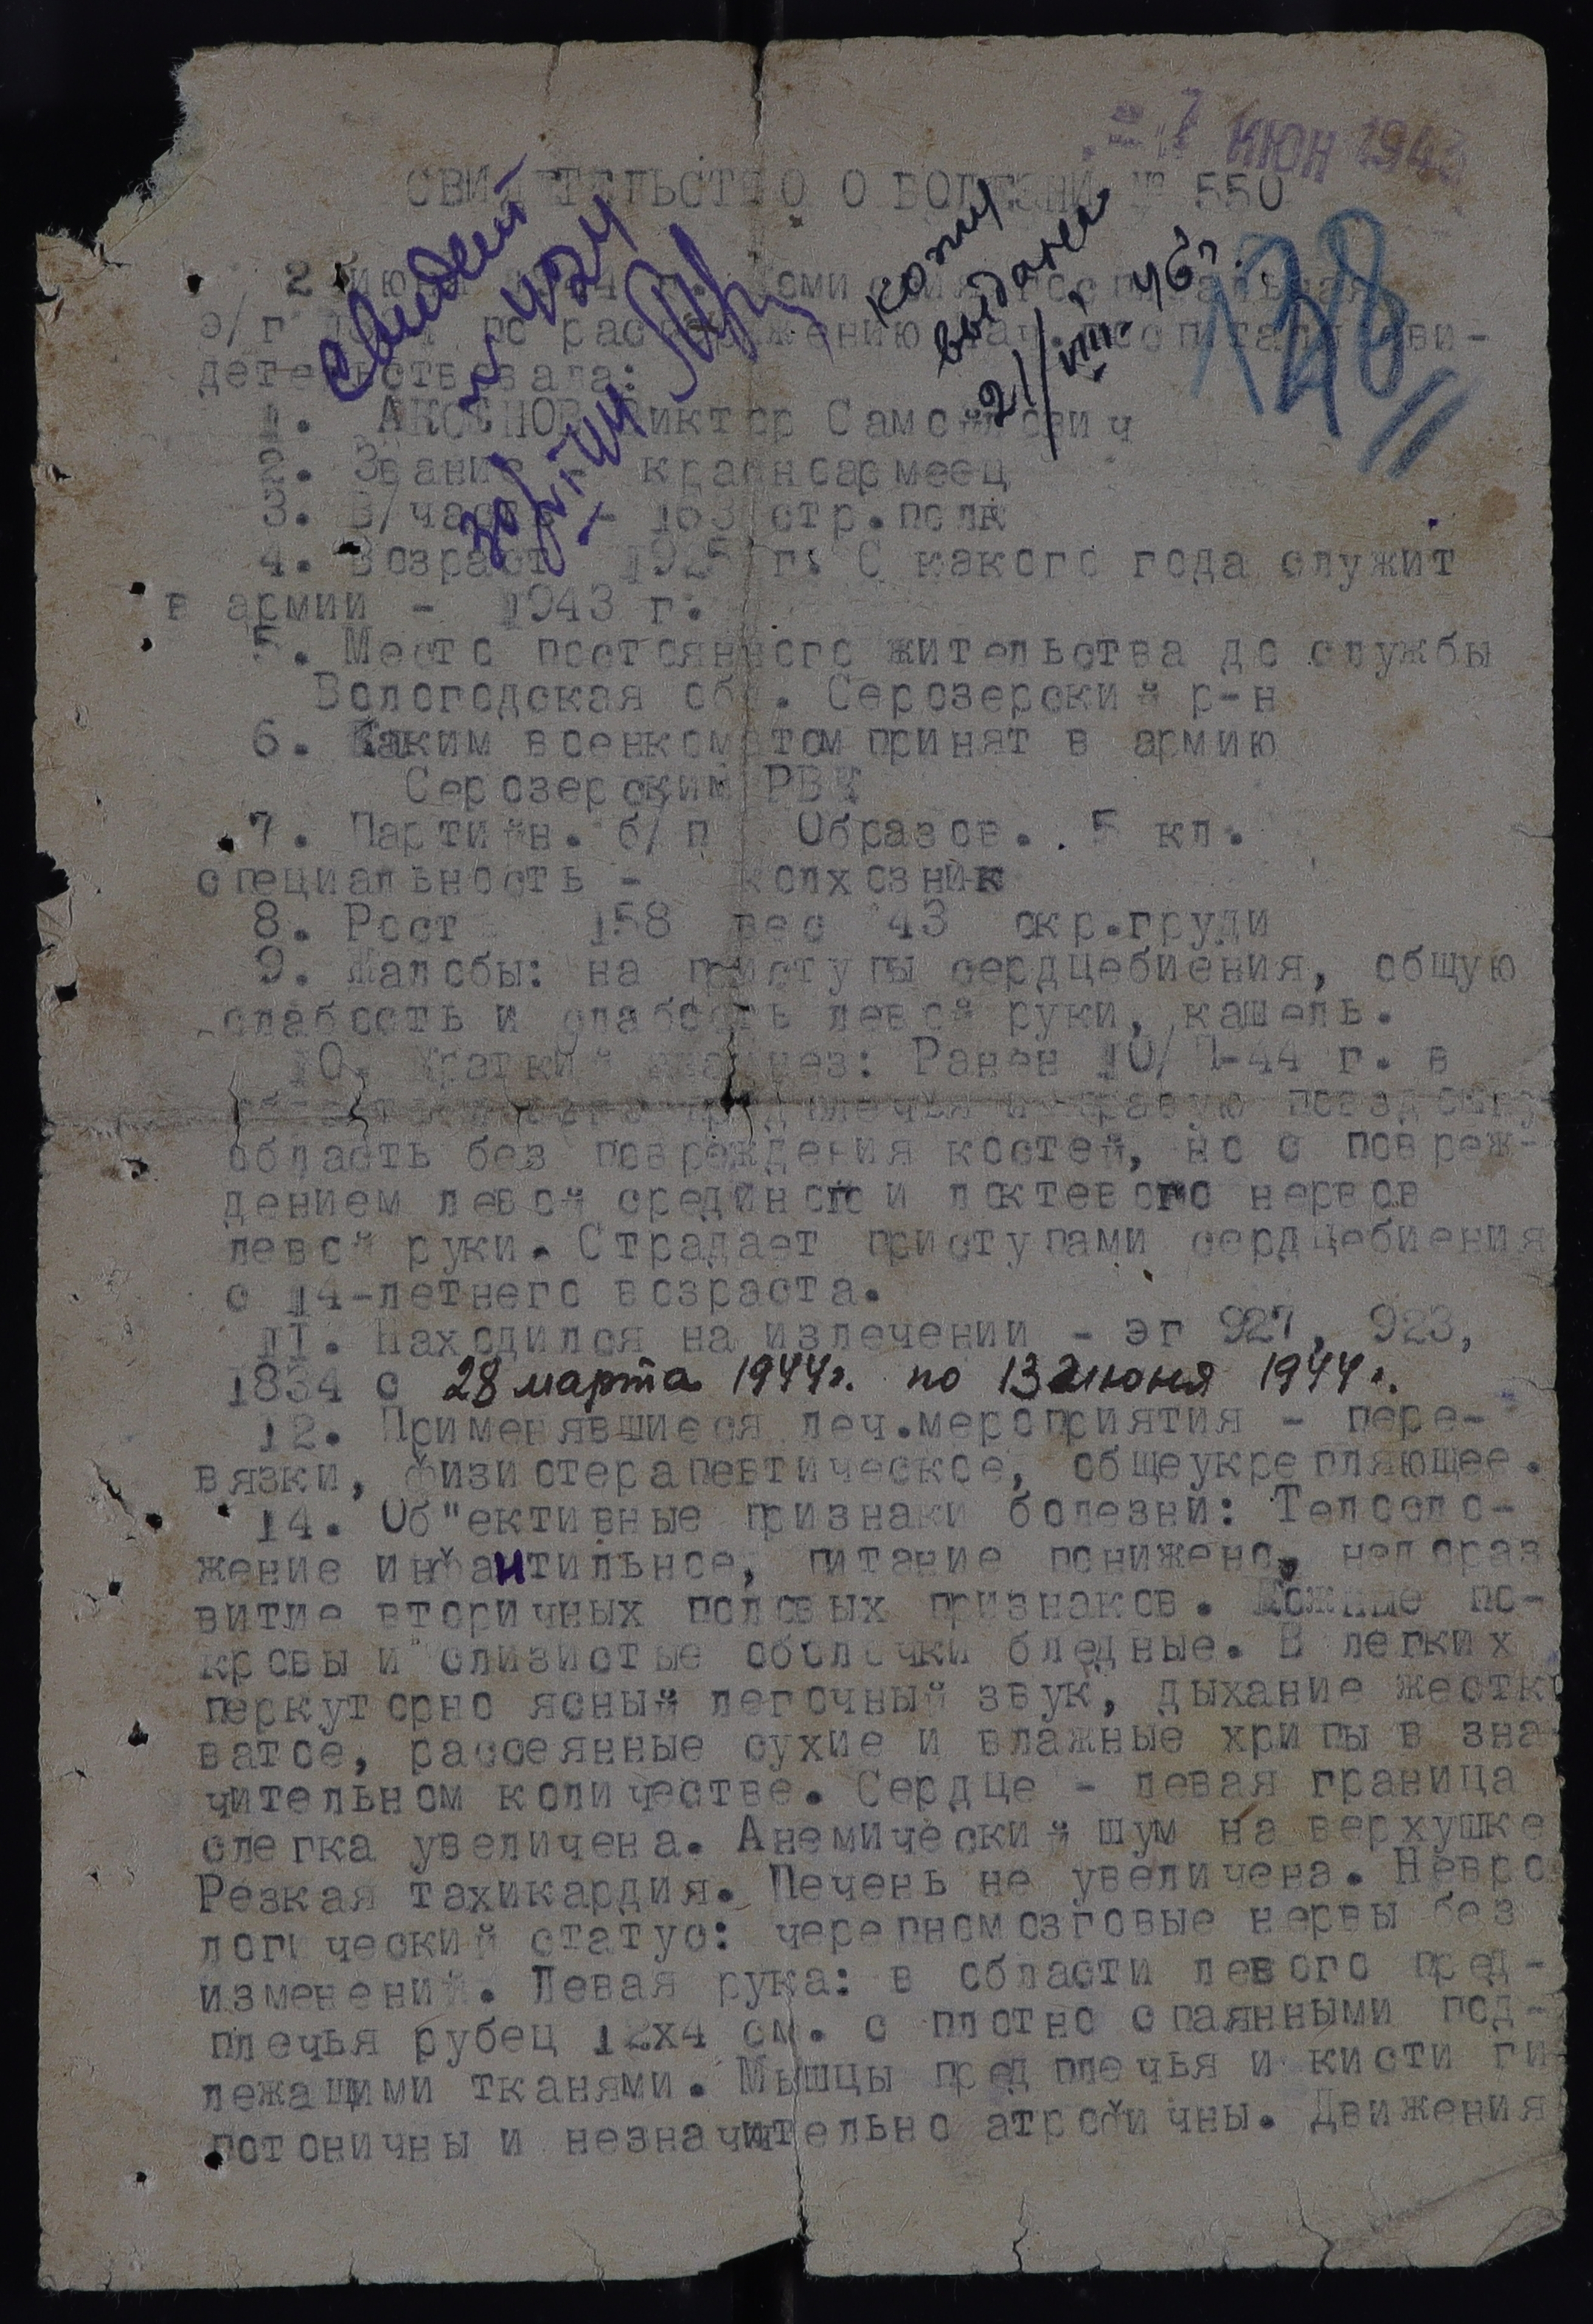 ИЮН 194
СВИДЕТЕЛЬСТВО О БОЛЕЗНИ № 550
128
копия
выдана
21/III 46 г.
э/г по распоряжению нач. госпиталя сви-
детельствовала:
1. АКСЕНОВ Виктор Самойлович
2. Звание - краснсармеец
3. В/часть - 163 стр.полк
4. Возраст 1925 г. С какого года служит
в армии - 1943 г.
5. Место постоянного жительства до службы
Вологодская обл. Серозерский р-н
6. Каким военкоматом принят в армию
Серозерским РВК
7. Партийн. б/п Образов. . 5 кл.
специальность - колхозник
8. Рост 158 вес 43 окр.груди
9. Жалобы: на приступы сердцебиения, общую
слабость и слабость левой руки, кашель.
10. Краткий анамнез: Ранен 10/ -44 г. в
предплечья и правую
область без повреждения костей, но с повреж-
дением левой и локтевого нервов
левой руки. Страдает приступами сердцебиения
с 14-летнего возраста.
11. Находился на излечении - эг 927, 923,
1834 с 28 марта 1944г. по 13 июня 1944г.
12. Применявшиеся леч.мероприятия - пере-
вязки, физиотерапевтическое, общеукрепляющее.
14. Об"ективные признаки болезни: Телосло-
жение инфантильное, питание понижено, недораз
витие вторичных половых признаков. Кожные по-
кровы и слизистые оболочки бледные. В легких
перкуторно ясный легочный звук, дыхание жестко
ватое, рассеянные сухие и влажные хрипы в зна
чительном количестве. Сердце - левая граница
слегка увеличена. Анемический шум на верхушке
Резкая тахикардия. Печень не увеличена. Невро
логический статус: черепномозговые нервы без
изменений. Левая рука: в области левого пред-
плечья рубец 12х4 см. с плотно спаянными под-
лежащими тканями. Мышцы предплечья и кисти ги
потоничны и незначительно атрофичны. Движения